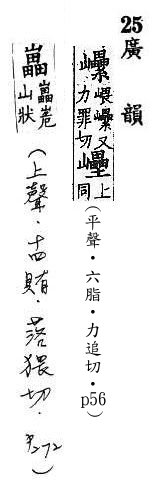 25廣韻
嵔又力罪切
上同
（平聲・六脂・力追切・p56）
山狀
（上聲．十四賄．落猥切．P272）